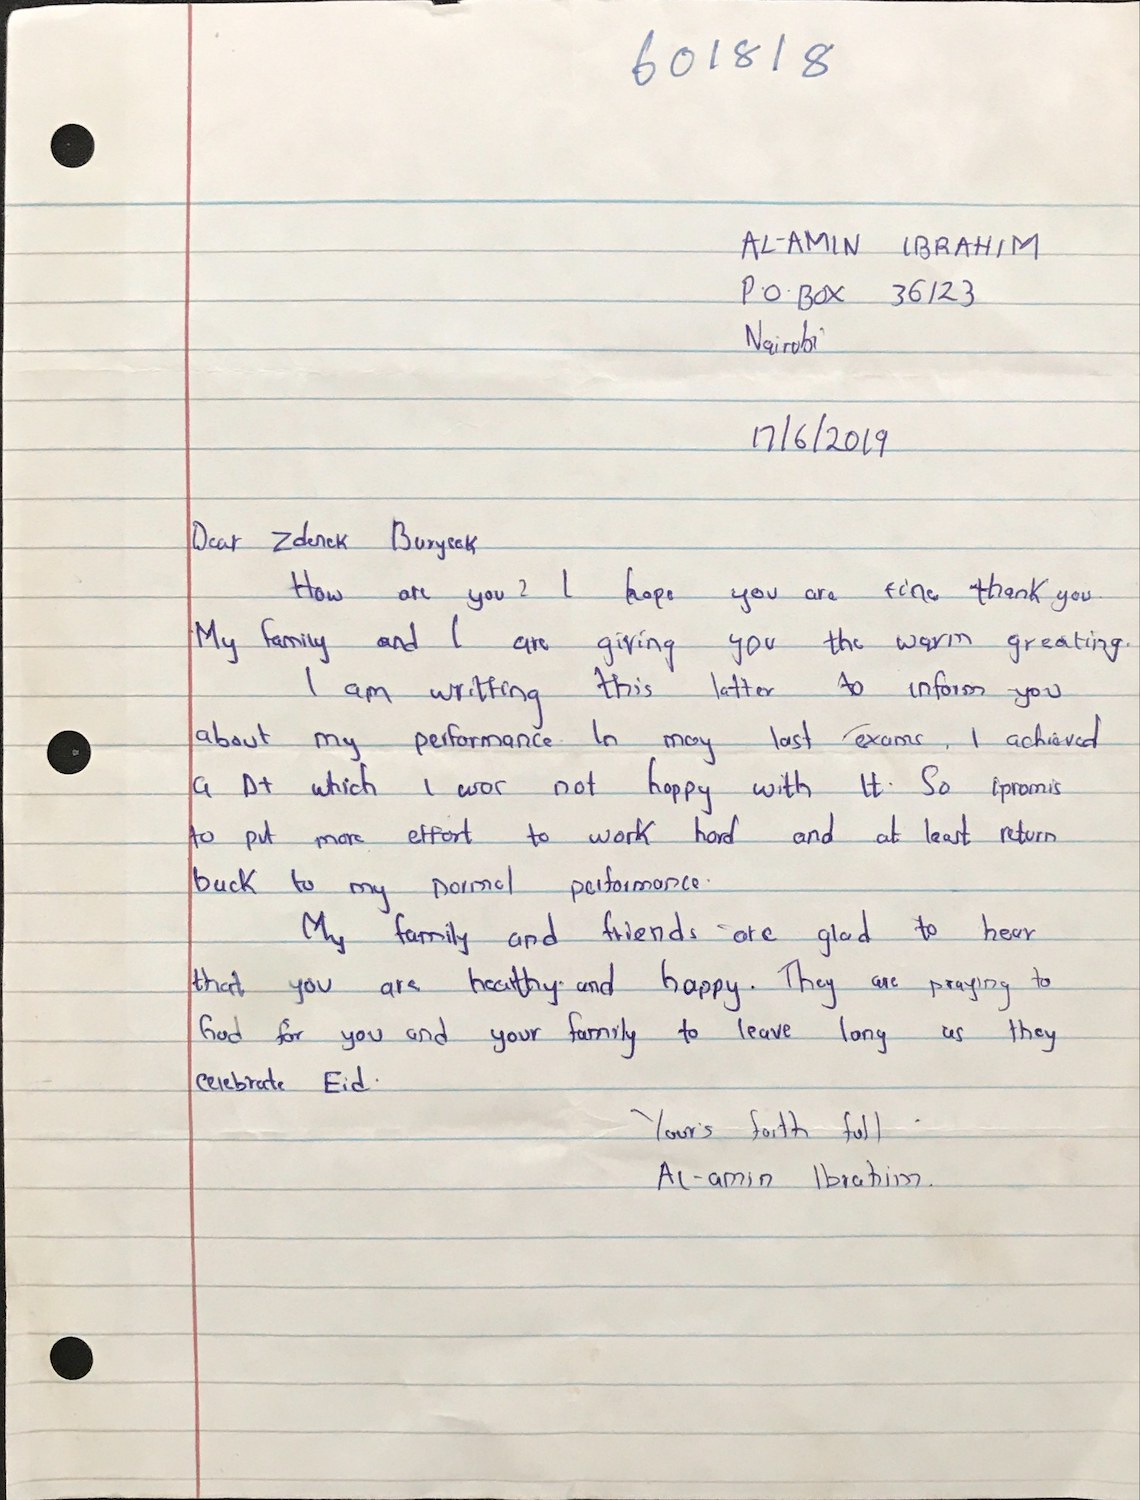 601818
AL-AMIN IBRAHIM
P.O. BOX 36123
Nairobi
17/6/2019
Dear Zdenek Burysek
How are you? I hope you are fine thank you.
My family and I are giving you the warm greating.
I am writting this latter to inform you
about my performance. In may last exams, I achieved
a D+ which I was not happy with It. So ipromis
to put more effort to work hard and at least return
back to my normal performance.
My family and friends are glad to hear
that you are healthy and happy. They are praying to
God for you and your family to leave long as they
celebrate Eid.
Your's faith full
AL-amin Ibrahim.